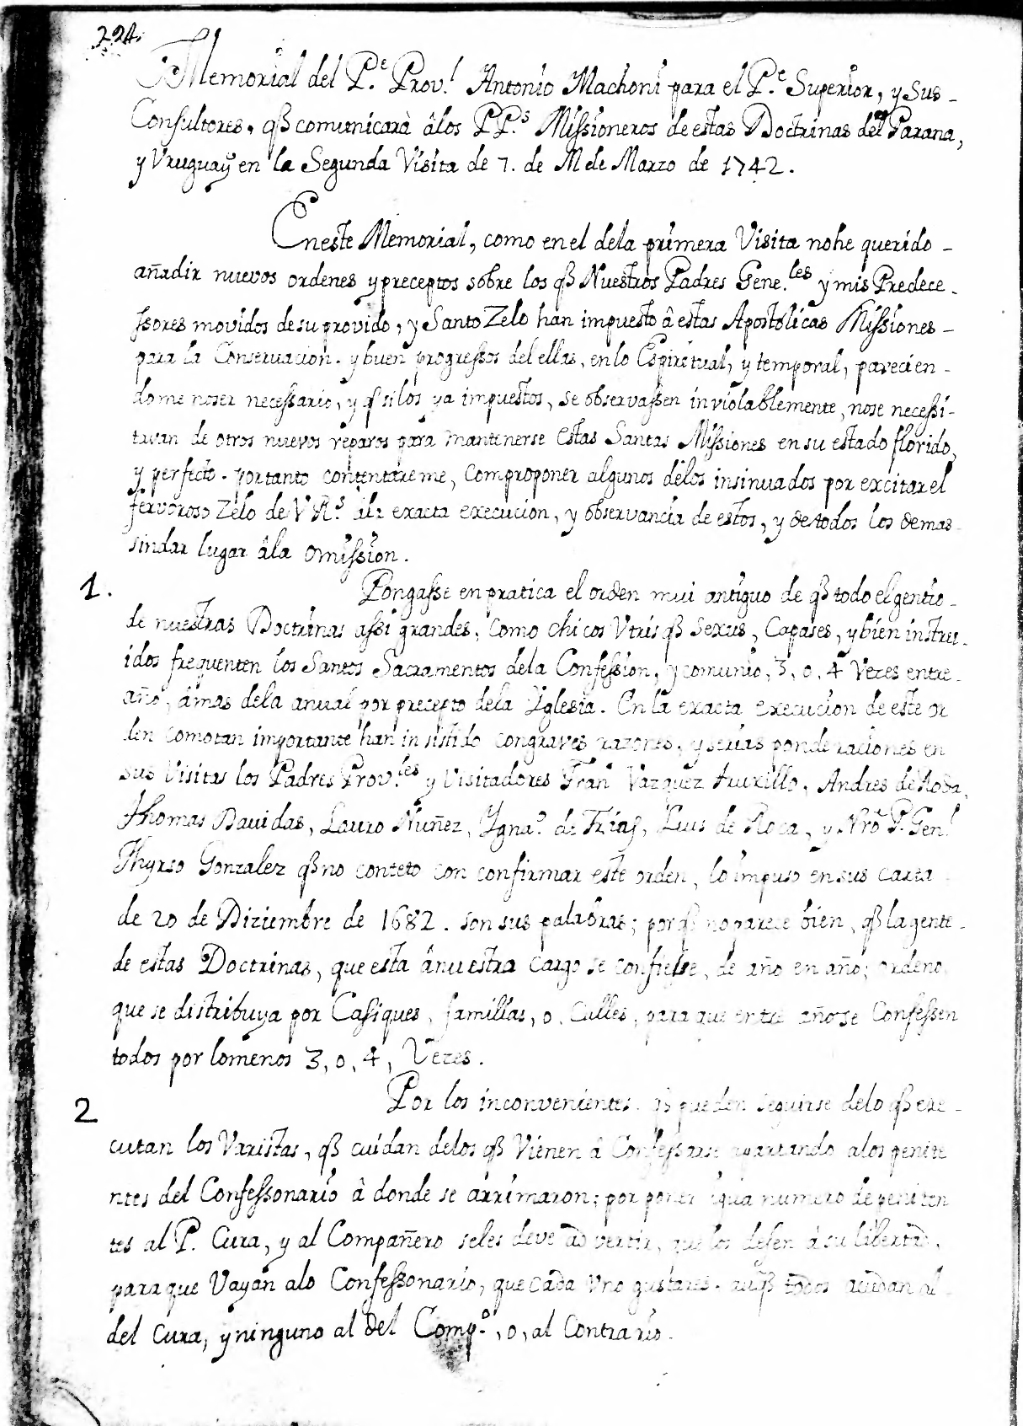 224.
Memorial del P.e Prov.l Antonio Machoni para el P.e Superior, y Sus-
Consultores, q̃ comunicarà âlos PP.s Missioneros de estas Doctrinas del Parana,
y Vruguaỹ en la Segunda Visita de 7. de M de Marzo de 1742.
Eneste Memorial, como en el dela primera Visita nohe querido-
añadir nuevos ordenes y preceptos sobre los q̃ Nuestros Padres Gene.les y mis Predece-
ssores movidos de su provido, y Santo Zelo han impuesto â estas Apostolicas Missiones-
para la Conservacion. y buen progressos del ellas, en lo Espiritual, y temporal, parecien-
dome noser necessario, y q̃ silos ya impuestos, se observassen inviolablemente, nose necessi-
tavan de otros nuevos reparos para mantenerse Estas Santas Missiones en su estado florido,
y perfecto. portanto contentareme, Comproponer algunos delos insinuados por excitar el
fervoroso Zelo de V Rs. ala exacta execucion, y observancia de estos, y de todos los demas-
sindar lugar âla omission.
1. Pongasse en pratica el orden mui antiguo de q̃ todo el gentio-
de nuestras Doctrinas assi grandes, Como chicos Vtris q̃ Sexus, Capases, y bien instru-
idos frequenten los Santos Sacramentos dela Confession, y comunio, 3, o, 4 Vezes entre-
año, âmas dela anual por precepto dela Yglesia. En la exacta execucion de este or
den Comotan importante han insistido congraves razones, y serias ponderaciones en
sus Visitas los Padres Prov.les y Visitadores Fran Vazquez truxillo, Andres de Roda,
Thomas Bavidas, Lauro Nuñez, Ygna.o de Frias, Luis de Roca, y Nro P. Gen.l
Thyrso Gonzalez q̃ no conteto con confirmar este orden, lo impuso en sus carta
de 20 de Diziembre de 1682. son sus palabras; por q̃ no parece bien, q̃ la gente-
de estas Doctrinas, que esta ânuestra cargo se confiesse, de año en año; ordeno
que se distribuya por Casiques, familias, o, Calles, para que entre año se Confessen
todos por lomenos 3, o, 4, Vezes.
2 Por los inconvenientes. q̃ pueden seguirse delo q̃ exe-
cutan los Varistas, q̃ cuidan delos q̃ Vienen â Confessarse apartando alos penite
ntes del Confessonario â donde se arrimaron; por poner igua numero de peniten
tes al P. Cura, y al Compañero seles deve advertir, que los desen â su libertad,
para que Vayan alo Confessonario, que cada Vno gustare. aunq̃ todos acudan al-
del Cura, y ninguno al del Comp.o, o, al Contrario.